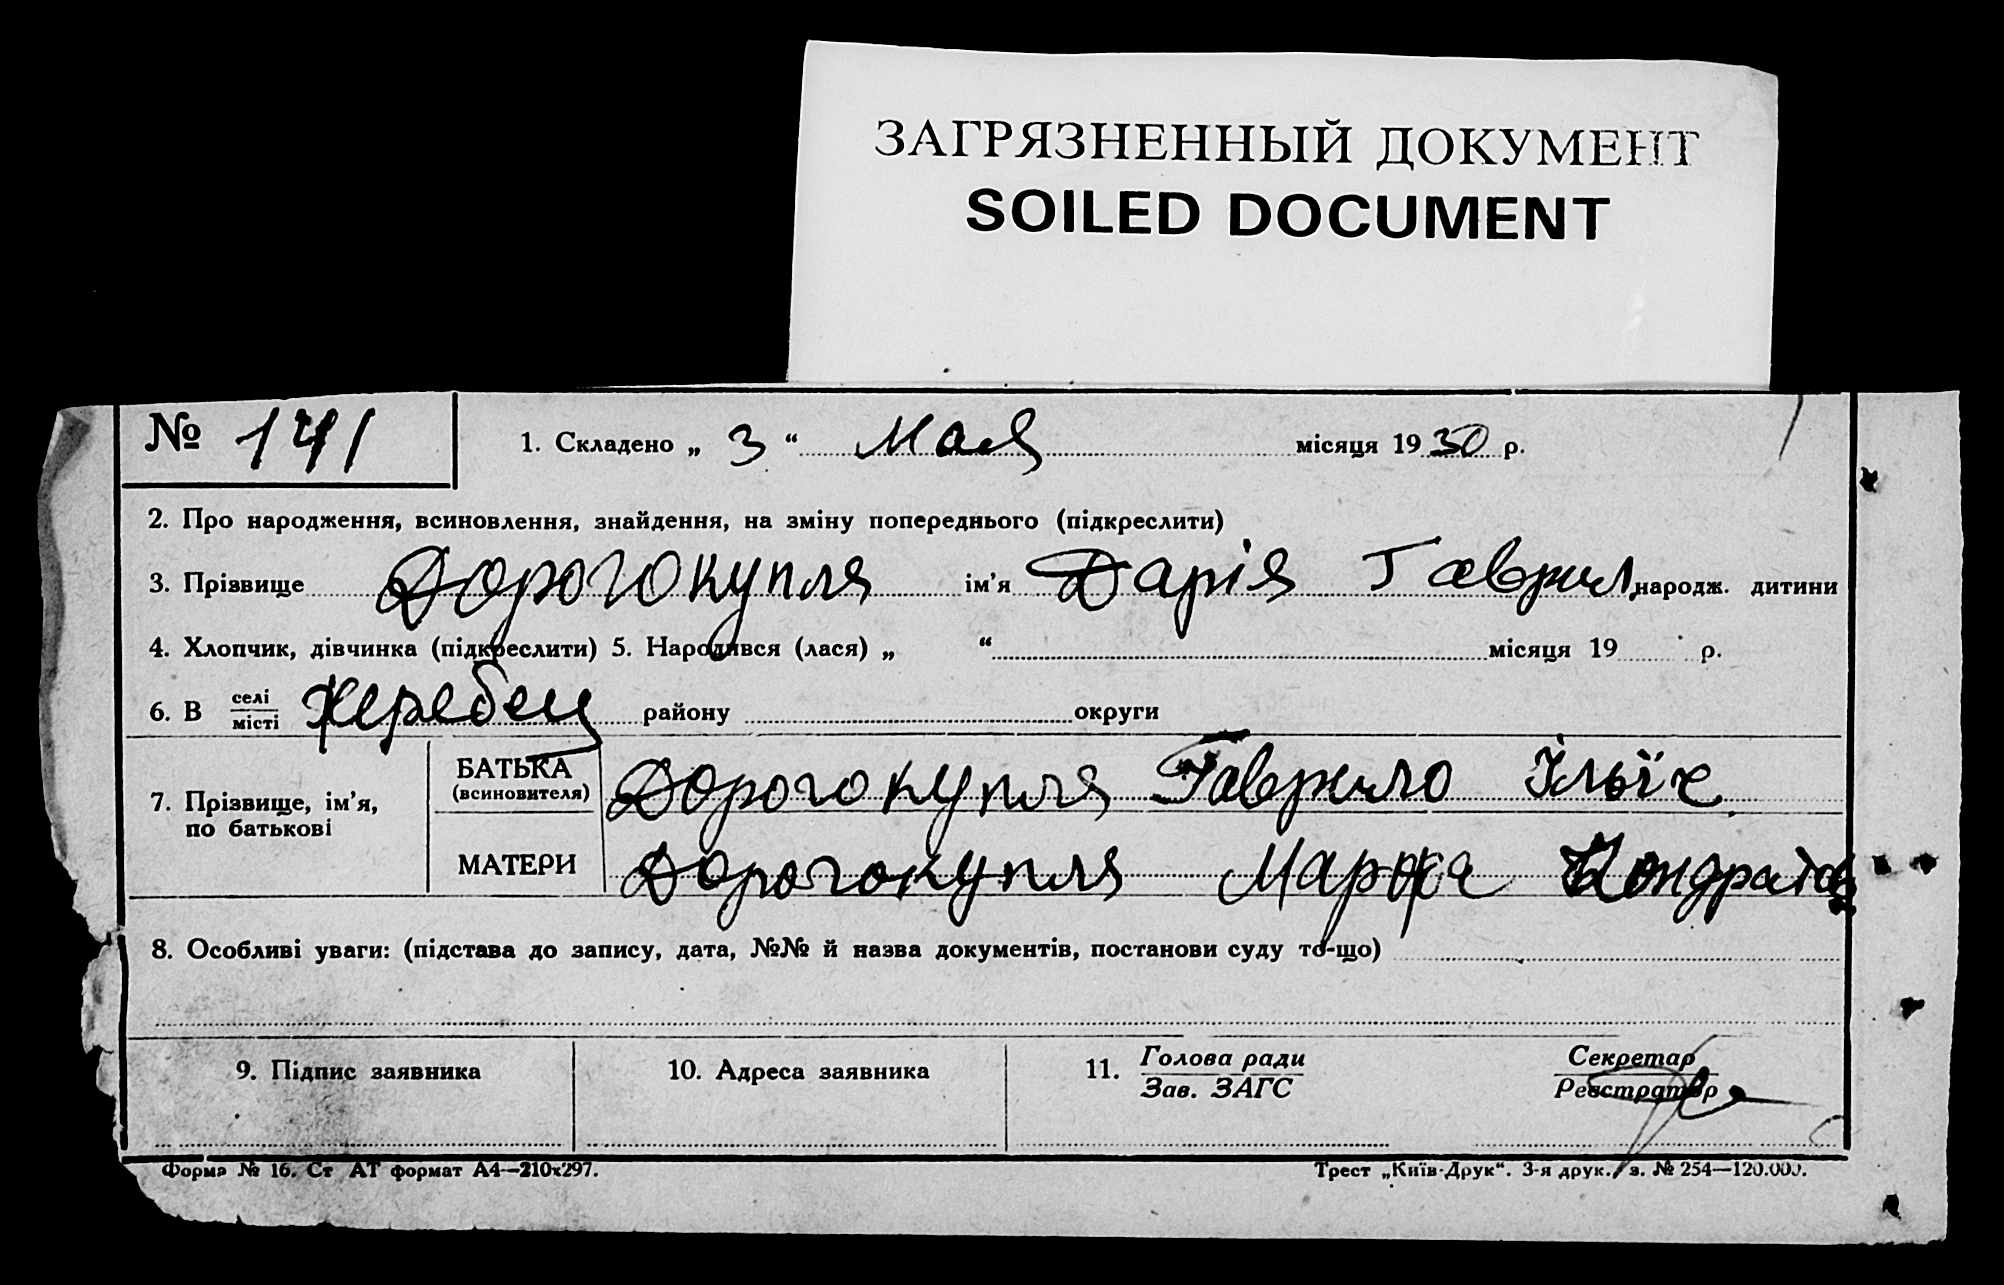 ЗАГРЯЗНЕННЫЙ ДОКУМЕНТ
SOILED DOCUMENT
№ 141
1. Складено „ 3 “ Мая місяця 1930 р.
2. Про народження, всиновлення, знайдення, на зміну попереднього (підкреслити)
3. Прізвище Дорогокупля ім’я Дарія Гаврил. народж. дитини
4. Хлопчик, дівчинка (підкреслити) 5. Народився (лася) „ “ місяця 19 р.
6. В селі місті Жеребец району округи
7. Прізвище, ім’я, по батькові
БАТЬКА (всиновителя) Дорогокупля Гаврило Ільїч
МАТЕРИ Дорогокупля Марфа Кондратов
8. Особливі уваги: (підстава до запису, дата, №№ й назва документів, постанови суду то-що)
9. Підпис заявника 10. Адреса заявника 11. Голова ради Зав. ЗАГС Секретар Реєстратор
Форма № 16. Ст АТ формат А4—210х297. Трест „Київ-Друк“. 3-я друк. з. № 254—120.000.